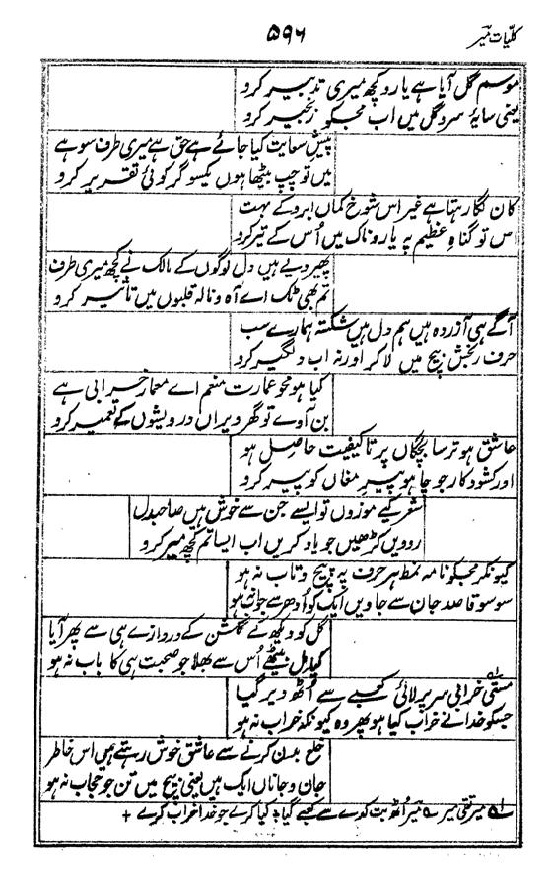 کلیات میر
۵۹۶
موسم گل آیا ہے یارو کچھ میری تدبیر کرو
یعنی سایۂ سرو گل میں اب مجکو زنجیر کرو
پیش سعایت کیا جائے ہے حق ہے میری طرف سو ہے
میں تو چپ بیٹھا ہوں یکسو گر کوئی تقریر کرو
کان لگا رہتا ہے غیر اس شوخ کماں ابرو کے بہت
اس تو گناہ عظیم پہ یارو ناک میں اُس کے تیر کرو
پھیر دیے ہیں دل لوگوں کے مالک نے کچھ میری طرف
تم بھی ٹک اے آہ و نالہ قلبوں میں تاثیر کرو
آگے ہی آزردہ ہیں ہم دل ہیں شکستہ ہمارے سب
حرف رنجش بیچ میں لا کر اور نہ اب دلگیر کرو
کیا ہو محو عمارت منعم اے معمار خرابی ہے
بن آوے تو گھر ویراں درویشوں کے تعمیر کرو
عاشق ہو ترسا بچگاں پر تا کیفیت حاصل ہو
اور کشود کار جو چاہو پیر مغاں کو پیر کرو
شعر کیے موزوں تو ایسے جن سے خوش ہیں صاحبدل
روویں کڑھیں جو یاد کریں اب ایسا تم کچھ میر کرو
کیونکر مجکو نامہ نمط ہر حرف پہ پیچ و تاب نہ ہو
سو سو قاصد جان سے جاویں ایک کو اُودھر سے جواب نہ ہو
گل کو دیکھ کے گلشن کے دروازے ہی سے پھر آیا
کیا مل بیٹھے اُس سے بھلا جو صحبت ہی کا باب نہ ہو
مستی خرابی سر پر لائی کعبے سے اُٹھ دیر گیا
جسکو خدا نے خراب کیا ہو پھر وہ کیونکہ خراب نہ ہو
خلع بدن کرنے سے عاشق خوش رہتے ہیں اس خاطر
جان و جاناں ایک ہیں یعنی بیچ میں تن جو حجاب نہ ہو
میر تقی میر ؎ میر اُٹھ بت کدے سے کعبے گیا + کیا کرے جو خدا خراب کرے +